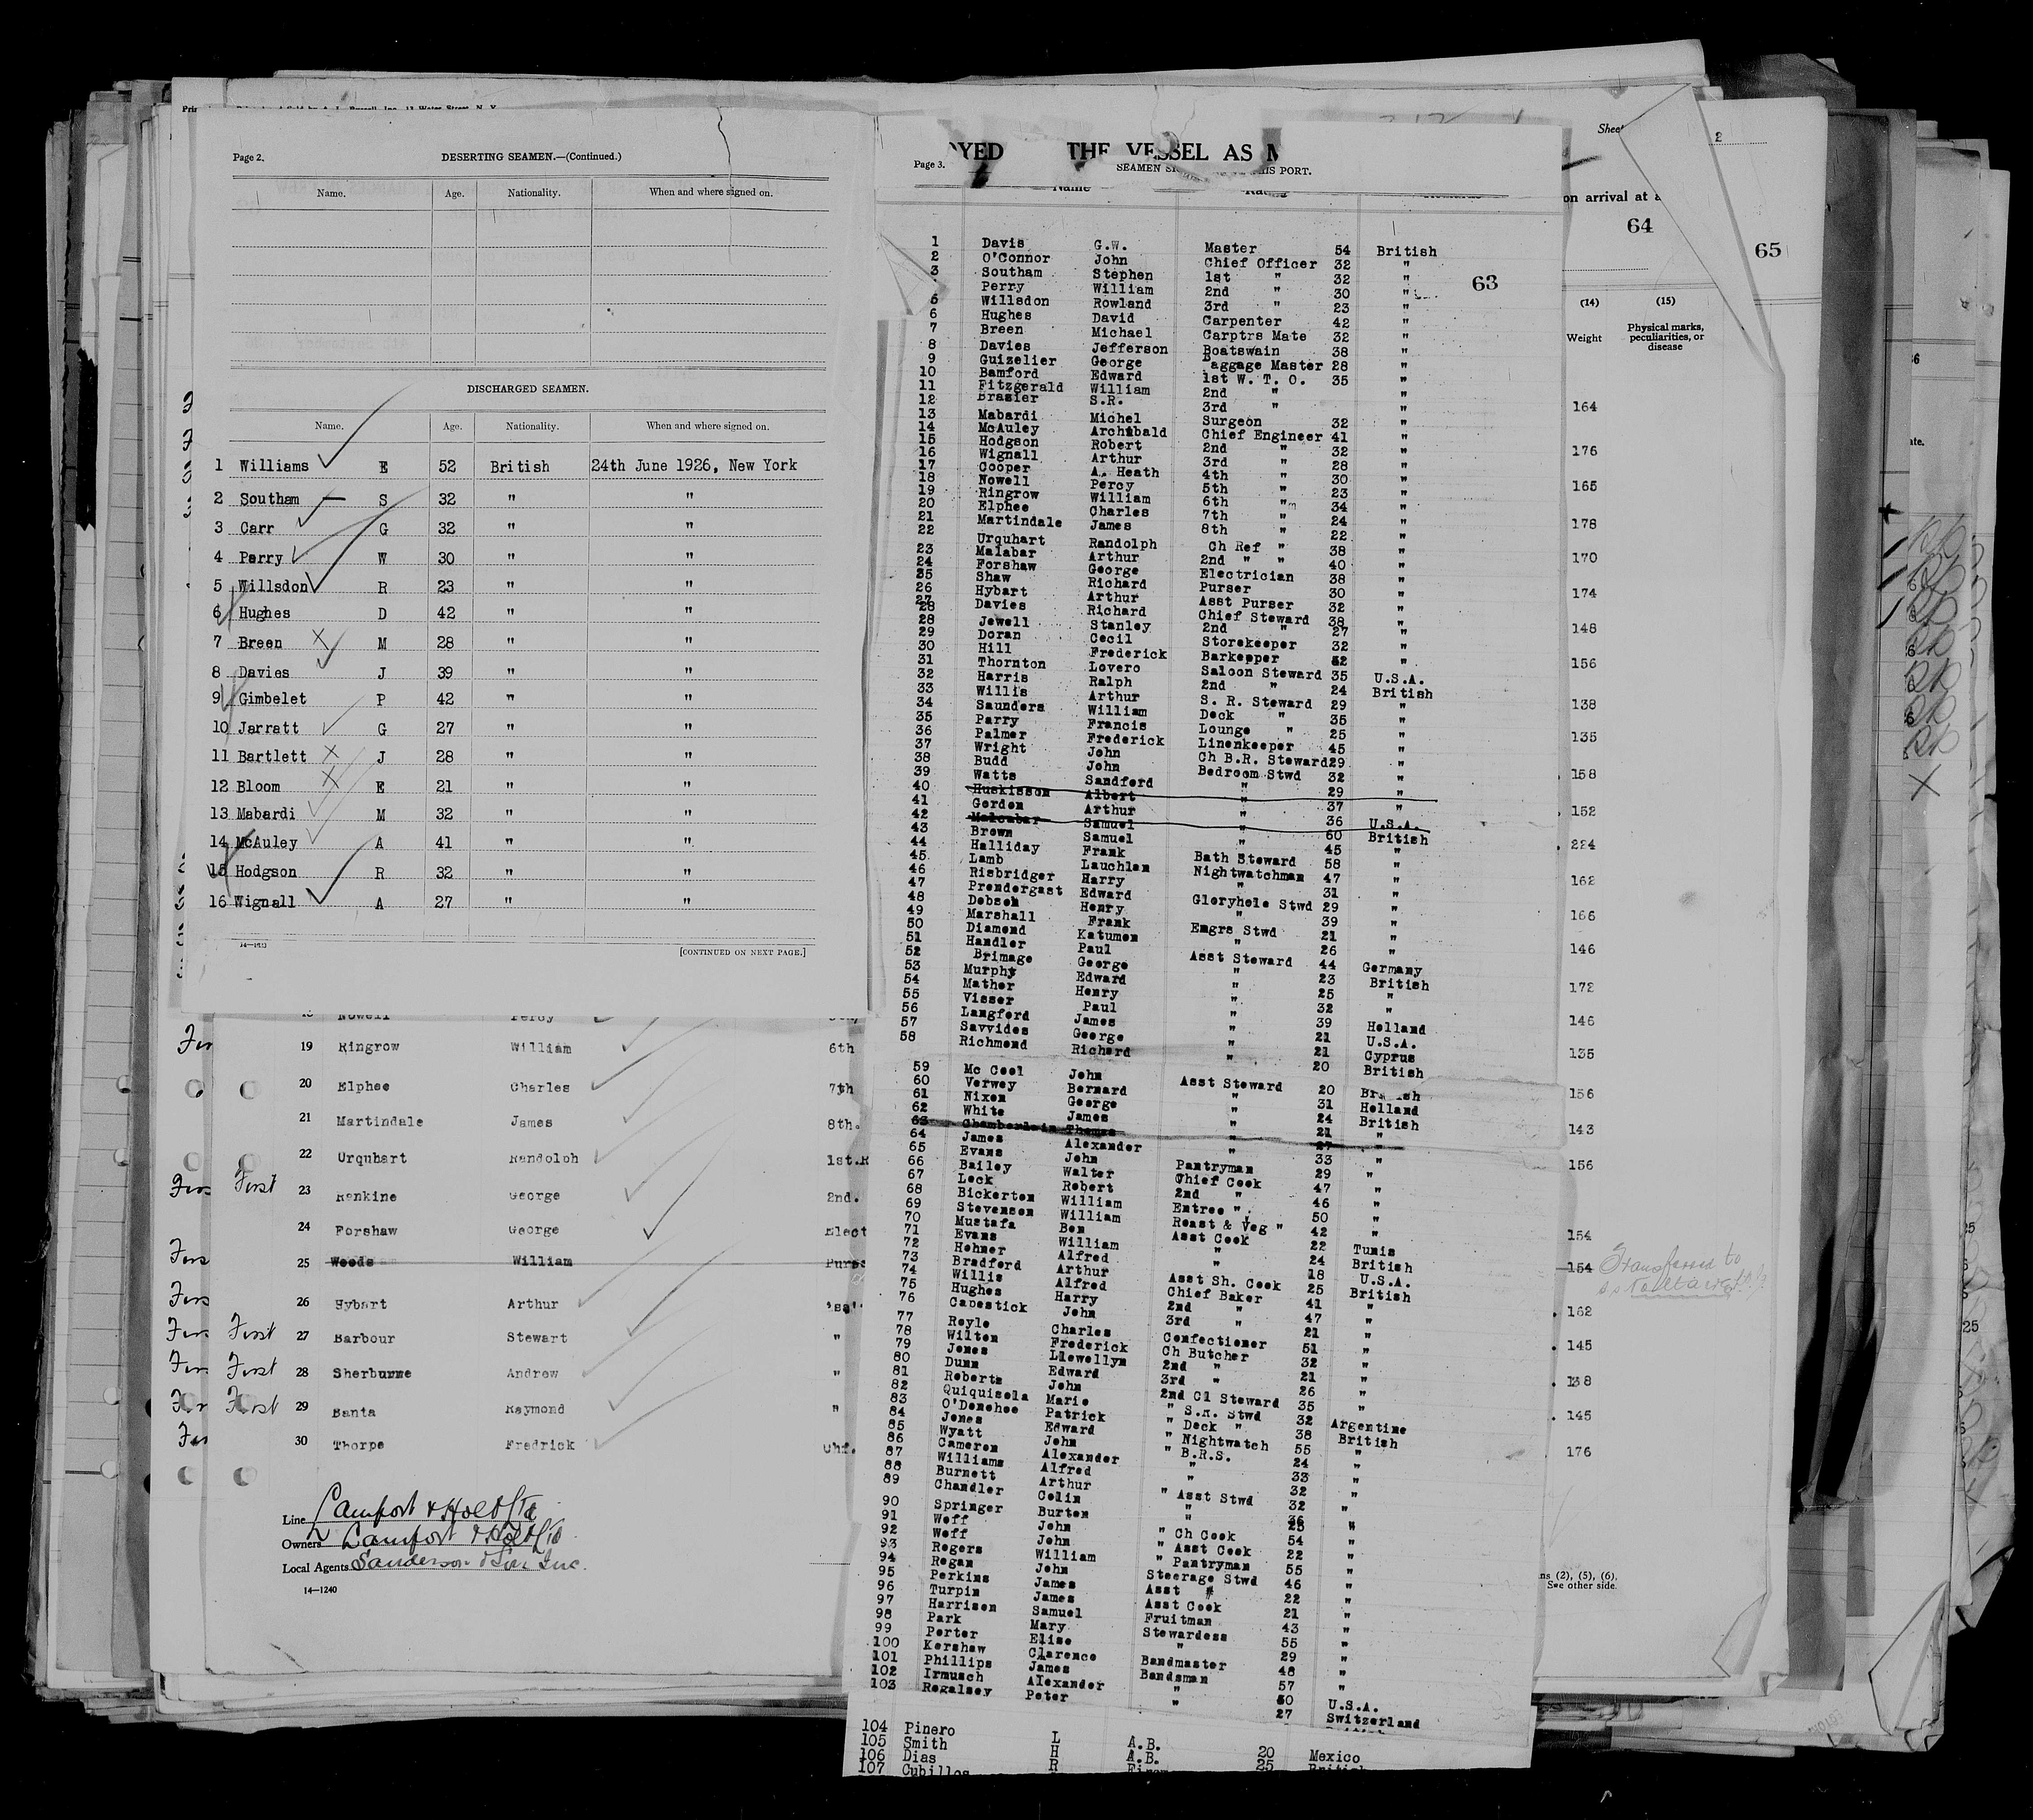 Page 2.
DESERTING SEAMEN.—(Continued.)
Name. Age. Nationality. When and where signed on.
DISCHARGED SEAMEN.
Name. Age. Nationality. When and where signed on.
1 Williams E 52 British 24th June 1926, New York
2 Southam S 32 " "
3 Carr G 32 " "
4 Perry W 30 " "
5 Willsdon R 23 " "
6 Hughes D 42 " "
7 Breen M 28 " "
8 Davies J 39 " "
9 Gimbelet P 42 " "
10 Jarratt G 27 " "
11 Bartlett J 28 " "
12 Bloom E 21 " "
13 Mabardi M 32 " "
14 McAuley A 41 " "
15 Hodgson R 32 " "
16 Wignall A 27 " "
[CONTINUED ON NEXT PAGE.]
Nowell Percy
19 Ringrow William 6th
20 Elphee Charles 7th
21 Martindale James 8th.
22 Urquhart Randolph 1st.R
First 23 Renkine George 2nd.
24 Forshaw George Elect
25 Woods William Purs
26 Hybart Arthur
First 27 Barbour Stewart "
First 28 Sherburne Andrew "
First 29 Banta Raymond "
30 Thorpe Fredrick Chf.
Line Lamport & Holt Ltd
Owners Lamport & Holt Ltd
Local Agents Sanderson & Son Inc.
14—1240
YED THE VESSEL AS M
Page 3.
SEAMEN THIS PORT.
63
1 Davis G.W. Master 54 British
2 O'Connor John Chief Officer 32 "
3 Southam Stephen 1st " 32 "
Perry William 2nd " 30 "
5 Willsdon Rowland 3rd " 23 "
6 Hughes David Carpenter 42 "
7 Breen Michael Carptrs Mate 32 "
8 Davies Jefferson Boatswain 38 "
9 Guizelier George aggage Master 28 "
10 Bamford Edward 1st W. T. O. 35 "
11 Fitzgerald William 2nd " "
12 Brasier S.R. 3rd " "
13 Mabardi Michel Surgeon 32 "
14 McAuley Archibald Chief Engineer 41 "
15 Hodgson Robert 2nd " 32 "
16 Wignall Arthur 3rd " 28 "
17 Cooper A. Heath 4th " 30 "
18 Nowell Percy 5th " 23 "
19 Ringrow William 6th " 34 "
20 Elphee Charles 7th " 24 "
21 Martindale James 8th " 22 "
22 Urquhart Randolph Ch Ref " 38 "
23 Malabar Arthur 2nd " " 40 "
24 Forshaw George Electrician 38 "
25 Shaw Richard Purser 30 "
26 Hybart Arthur Asst Purser 32 "
27 Davies Richard Chief Steward 38 "
28 Jewell Stanley 2nd " 27 "
29 Doran Cecil Storekeeper 32 "
30 Hill Frederick Barkeeper 52 "
31 Thornton Lovero Saloon Steward 35 U.S.A.
32 Harris Ralph 2nd " 24 British
33 Willis Arthur S. R. Steward 29 "
34 Saunders William Deck " 35 "
35 Parry Francis Lounge " 25 "
36 Palmer Frederick Linenkeeper 45 "
37 Wright John Ch B.R. Steward 29 "
38 Budd John Bedroom Stwd 32 "
39 Watts Sandford " 29 "
40 Huskisson Albert " 37 "
41 Gordon Arthur " 36 U.S.A.
42 Malcabar Samuel " 60 British
43 Brown Samuel " 45 "
44 Halliday Frank Bath Steward 58 "
45 Lamb Lauchlan Nightwatchman 47 "
46 Risbridger Harry " 31 "
47 Prendergast Edward Gloryhole Stwd 29 "
48 Dobson Henry " 39 "
49 Marshall Frank Emgrs Stwd 21 "
50 Diamond Katumen " 26 "
51 Handler Paul Asst Steward 44 Germany
52 Brimage George " 23 British
53 Murphy Edward " 25 "
54 Mather Henry " 32 "
55 Visser Paul " 39 Holland
56 Langford James " 21 U.S.A.
57 Savvides George " 21 Cyprus
58 Richmond Richard " 20 British
59 Mc Cool John Asst Steward 20
60 Verwey Bernard " 31 Holland
61 Nixon George " 24 British
62 White James " 21 "
63 Chamberlain Thomas " 27
64 James Alexander " 33 "
65 Evans John Pantryman 29 "
66 Bailey Walter Chief Cook 47 "
67 Lock Robert 2nd " 46 "
68 Bickerton William Entree " 50 "
69 Stevenson William Roast & Veg " 42 "
70 Mustafa Ben Asst Cook 22 Tunis
71 Evans William " 24 British
72 Hohner Alfred " 18 U.S.A.
73 Bradford Arthur Asst Sh. Cook 25 British
74 Willis Alfred Chief Baker 41 "
75 Hughes Harry 2nd " 47 "
76 Capestick John 3rd " 21 "
77 Royle Charles Confectioner 51 "
78 Wilton Frederick Ch Butcher 32 "
79 Jones Llewellyn 2nd " 21 "
80 Dunn Edward 3rd " 26 "
81 Roberts John 2nd Cl Steward 35 "
82 Quiquisola Mario " S.R. Stwd 32 Argentine
83 O'Donohoe Patrick " Deck " 38 British
84 Jones Edward " Nightwatch 55 "
85 Wyatt John " B.R.S. 24 "
86 Cameron Alexander " 33 "
87 Williams Alfred " 32 "
88 Burnett Arthur " Asst Stwd 32 "
89 Chandler Colin "
90 Springer Burton " 25 "
91 Woff John " Ch Cook 54 "
92 Woff John " Asst Cook 22 "
93 Rogers William " Pantryman 55 "
94 Regan John Steerage Stwd 46 "
95 Perkins James Asst " 22 "
96 Turpin James Asst Cook 21 "
97 Harrison Samuel Fruitman 43 "
98 Park Mary Stewardess 55 "
99 Porter Elise " 29 "
100 Kershaw Clarence Bandmaster 48 "
101 Phillips James Bandsman 57 "
102 Irmusch Alexander " 50 U.S.A.
103 Regalsey Peter " 27 Switzerland
104 Pinero L A.B. 20 Mexico
105 Smith H A.B. 25
106 Dias R
107 Cubillos
Sheet 2
on arrival at a
64
65
(14) (15)
Weight Physical marks, peculiarities, or disease
164
176
165
178
170
174
148
156
138
135
158
152
224
162
166
146
172
146
135
156
143
156
154
154 Transferred to
162
145
138
145
176
ns (2), (5), (6).
See other side.